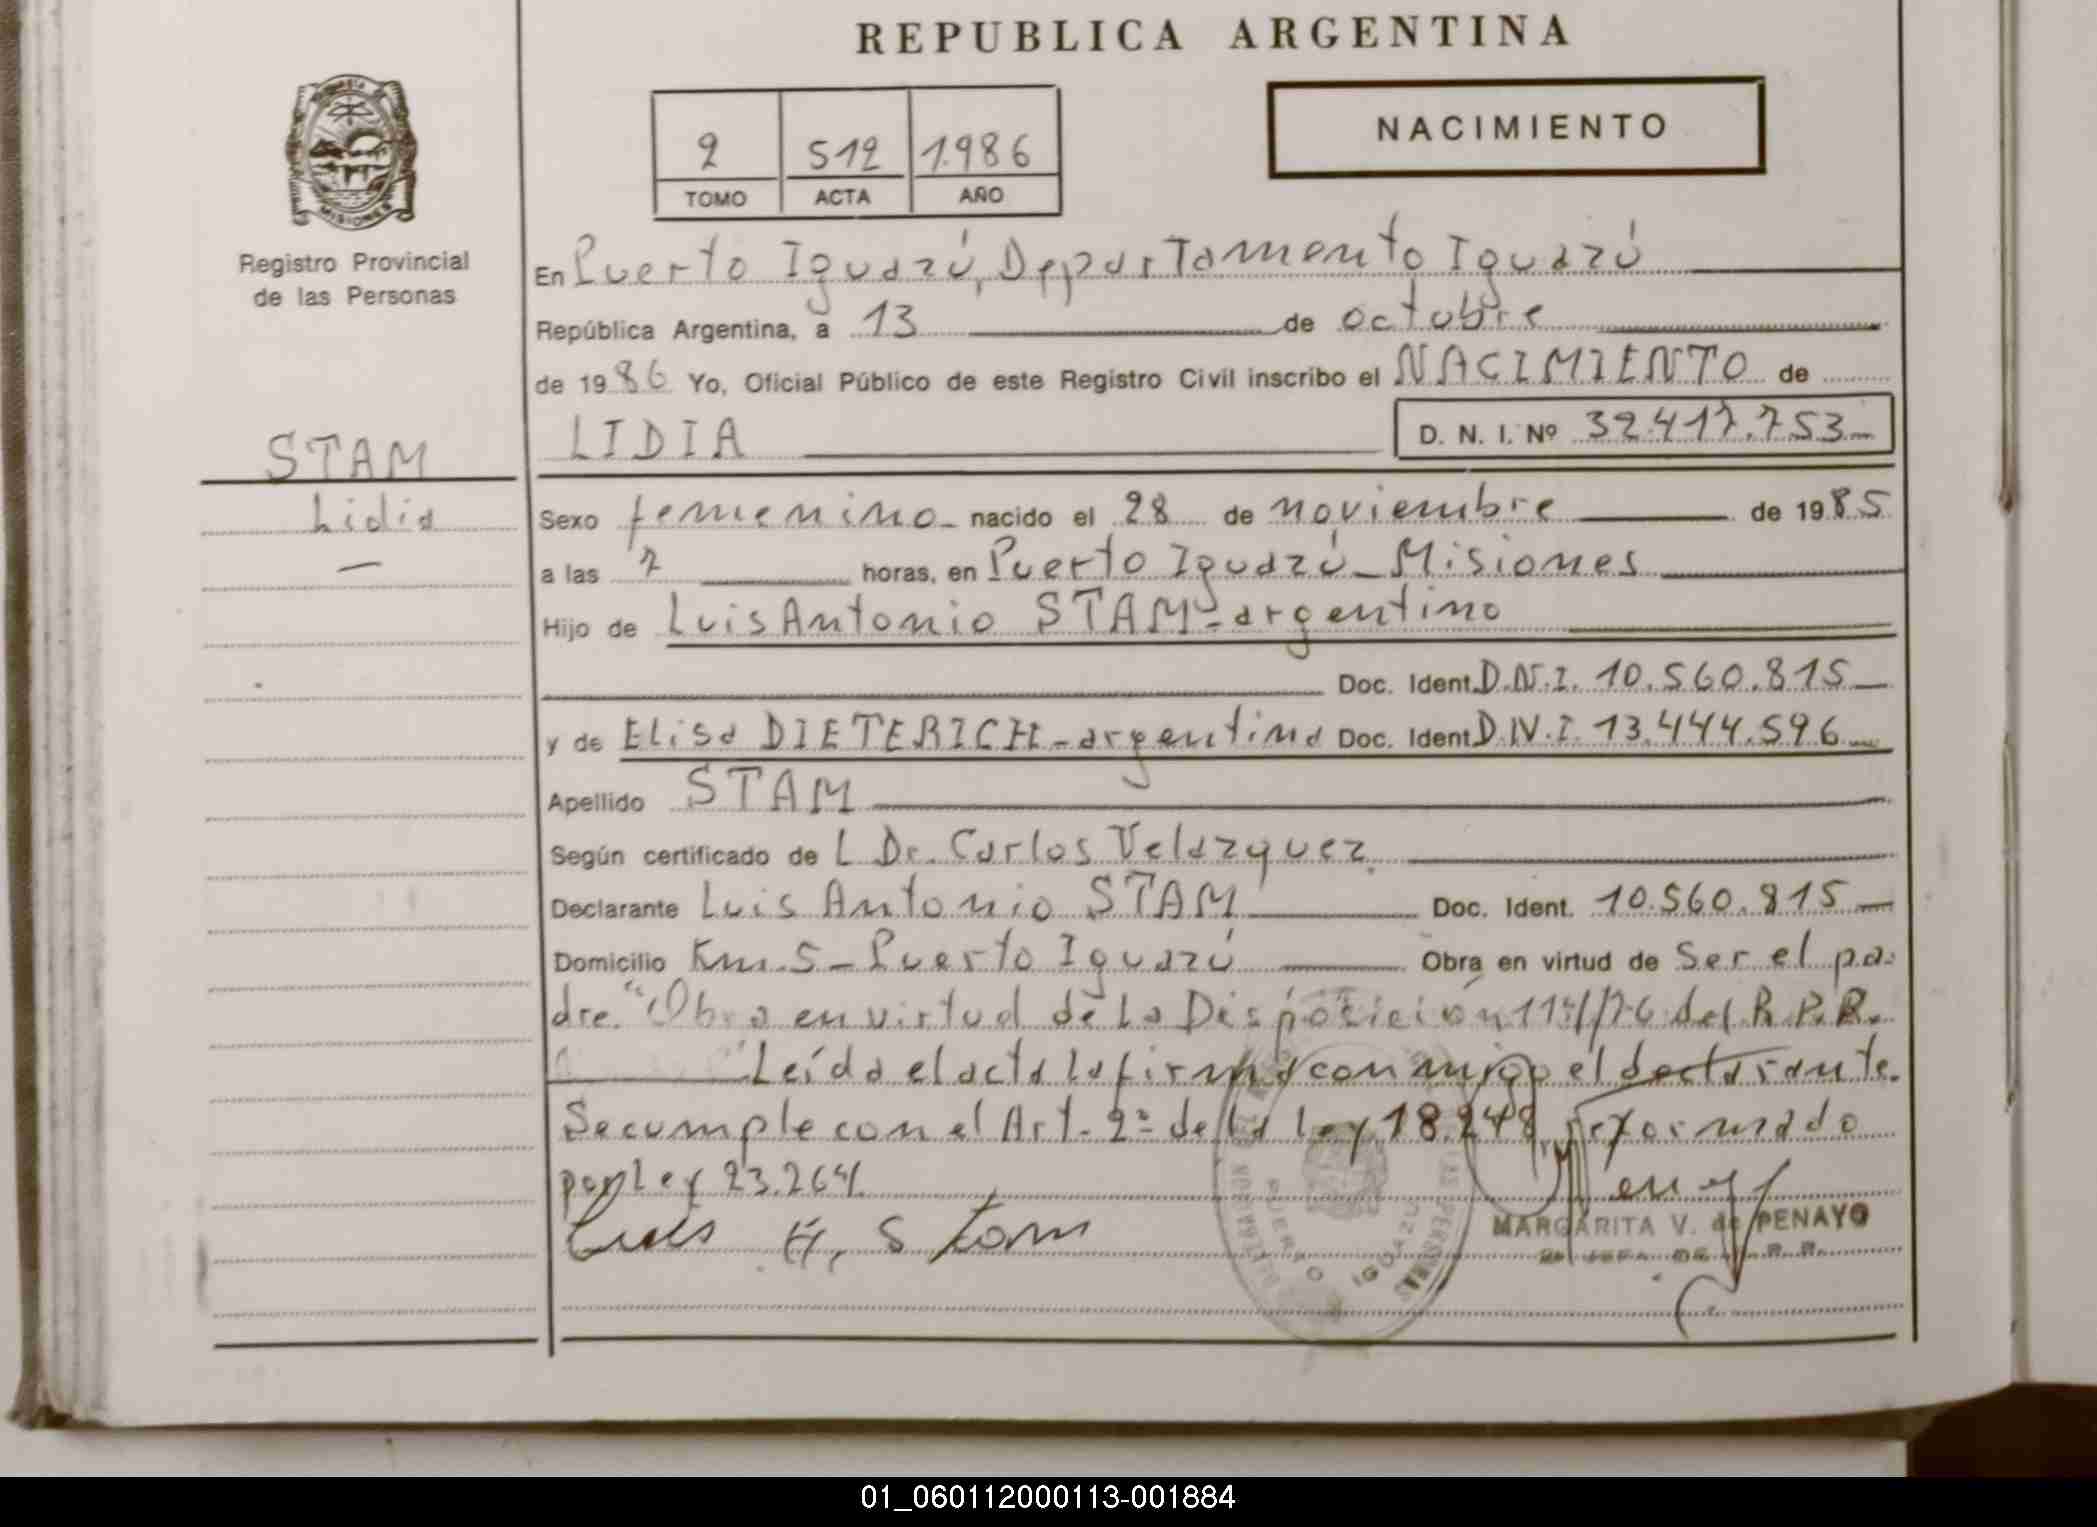 REPUBLICA ARGENTINA
2 512 1.986
TOMO ACTA AÑO
NACIMIENTO
MISIONES
Registro Provincial
de las Personas
STAM
Lidia
En Puerto Iguazú, Departamento Iguazú
República Argentina, a 13 de octubre
de 1986 Yo, Oficial Público de este Registro Civil inscribo el NACIMIENTO de
LIDIA D. N. I. Nº 32.417.753
Sexo femenino nacido el 28 de noviembre de 1985
a las 7 horas, en Puerto Iguazú - Misiones
Hijo de Luis Antonio STAM - argentino
Doc. Ident. D.N.I. 10.560.815
y de Elisa DIETERICH - argentina Doc. Ident. D.N.I. 13.444.596
Apellido STAM
Según certificado de L Dr. Carlos Velazquez.
Declarante Luis Antonio STAM Doc. Ident. 10.560.815
Domicilio Km. 5 - Puerto Iguazú Obra en virtud de Ser el pa-
dre. "Obra en virtud de la Disposición del R.P.R.
Leída el acta la firma conmigo el declarante.
Se cumple con el Art. 2º de la Ley 18.248, reformado
por Ley 23.264.
Luis A. Stam
MARGARITA V. de PENAYO
PUERTO IGUAZU
01_060112000113-001884